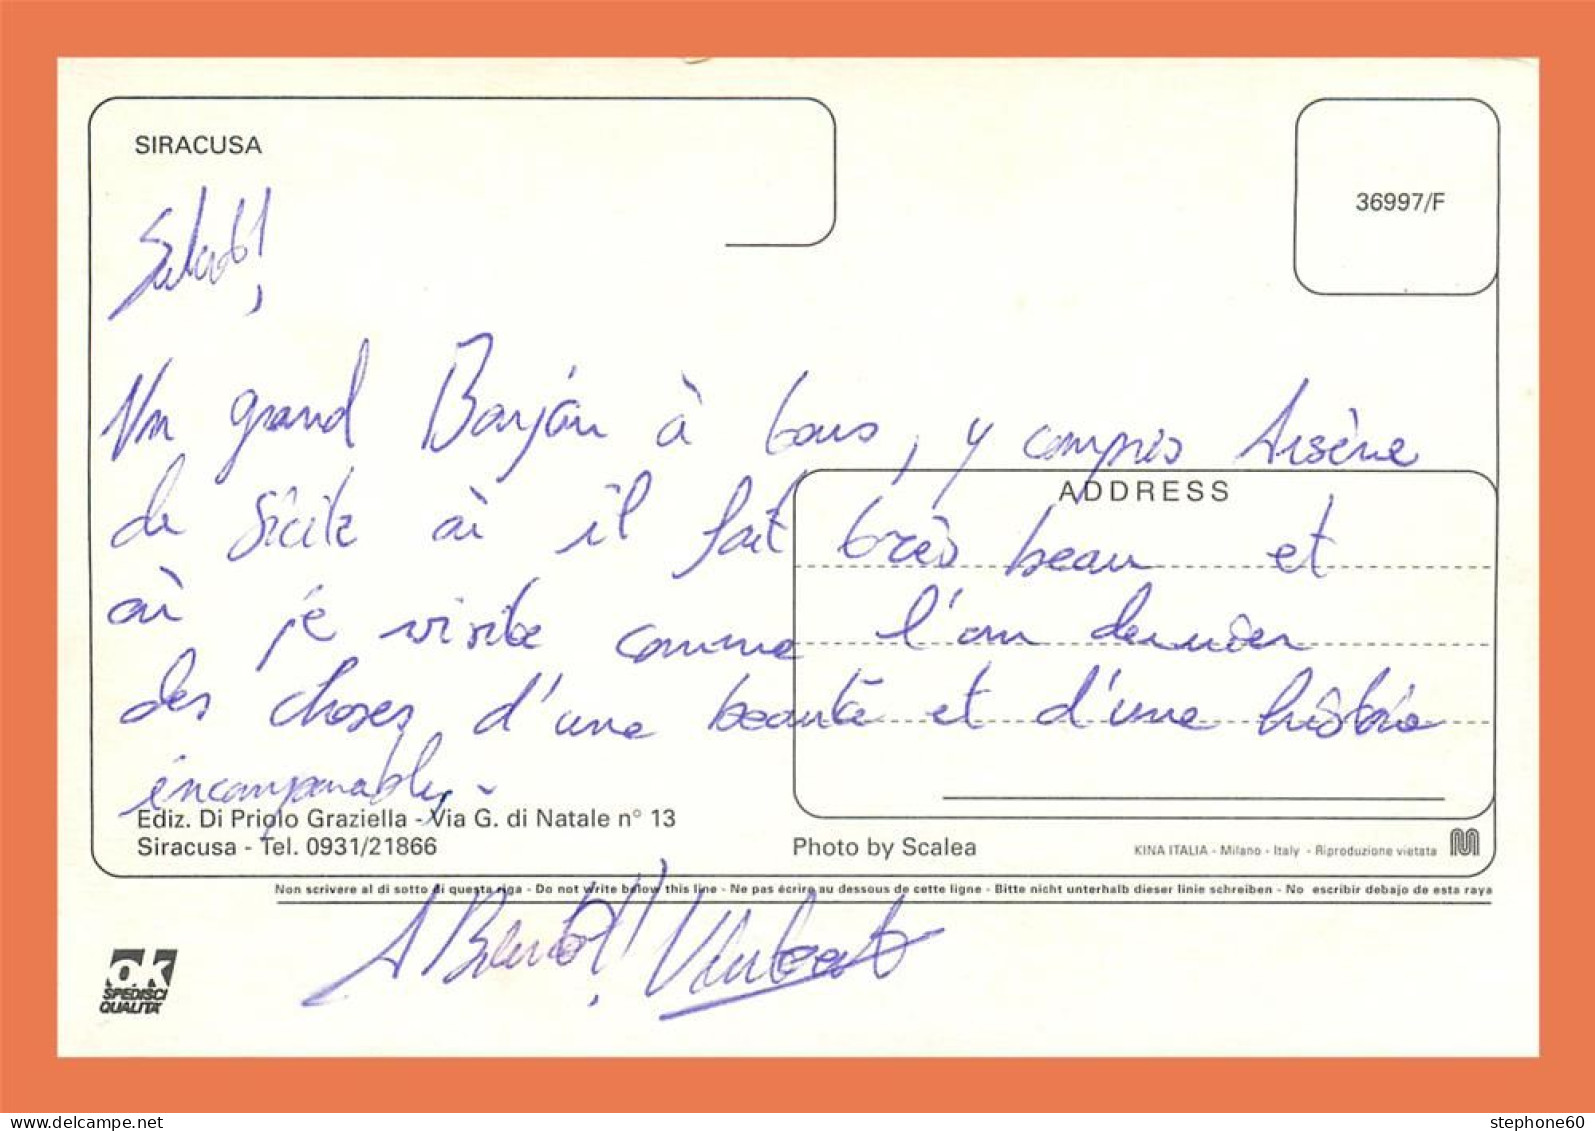 SIRACUSA
36997/F
Salut!,
Un grand Bonjour à tous, y compris Arsène
ADDRESS
de Sicile où il fait très beau et
où je visite comme l'an dernier
des choses d'une beauté et d'une histoire
incomparables.
Ediz. Di Priolo Graziella - Via G. di Natale n° 13
Siracusa - Tel. 0931/21866
Photo by Scalea
KINA ITALIA - Milano - Italy - Riproduzione vietata
Non scrivere al di sotto di questa riga - Do not write below this line - Ne pas écrire au dessous de cette ligne - Bitte nicht unterhalb dieser linie schreiben - No escribir debajo de esta raya
A Bientôt!!
ok
SPEDISCI
QUALITA'
stephone60